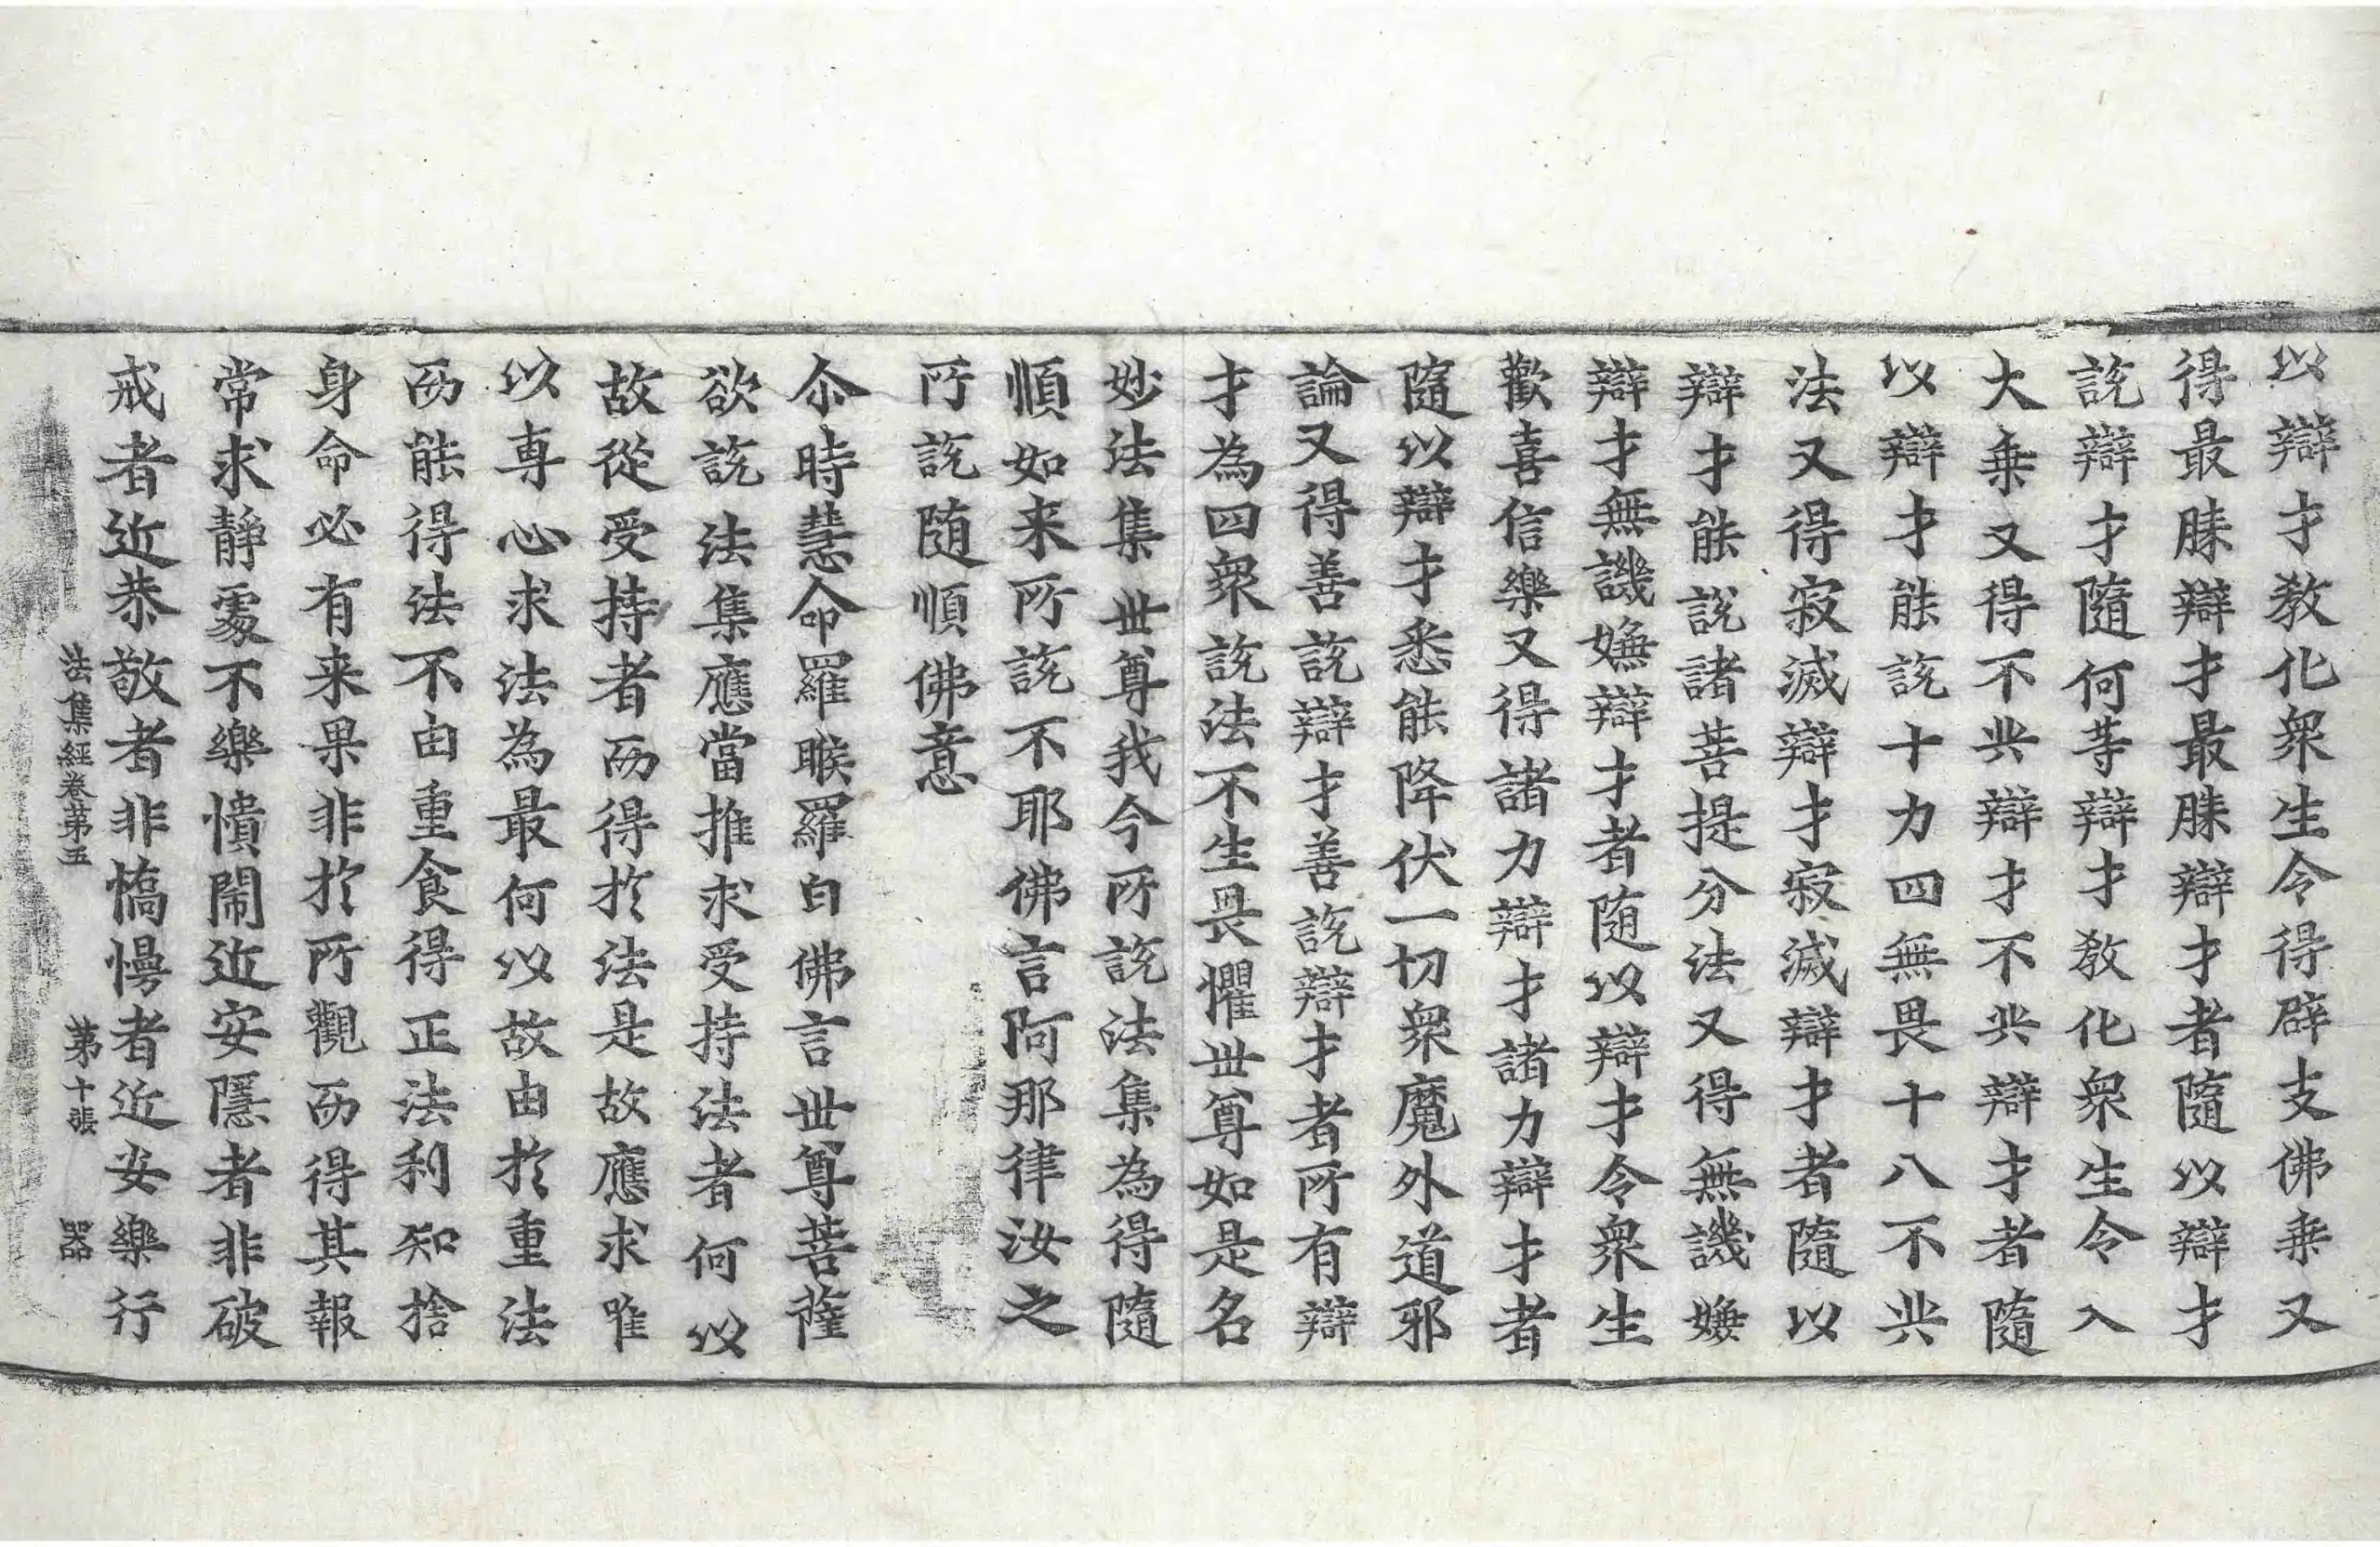 以辯才教化衆生令得辟支佛乗又
得最勝辯才最勝辯才者隨以辯才
說辯才隨何等辯才教化衆生令入
大乗又得不共辯才不共辯才者隨
以辯才能說十力四無畏十八不共
法又得寂滅辯才寂滅辯才者隨以
辯才能說諸菩提分法又得無譏嫌
辯才無譏嫌辯才者随以辯才令衆生
歡喜信樂又得諸力辯才諸力辯才者
隨以辯才悉能降伏一切衆魔外道邪
論又得善說辯才善說辯才者所有辯
才為四衆說法不生畏懼世尊如是名
妙法集世尊我今所說法集為得隨
順如来所說不耶佛言阿那律汝之
所說随順佛意
尒時慧命羅睺羅白佛言世尊菩薩
欲說法集應當推求受持法者何以
故從受持者而得於法是故應求唯
以專心求法為最何以故由於重法
而能得法不由重食得正法利知捨
身命必有来果非於所觀而得其報
常求靜處不樂憒閙近安隱者非破
戒者近恭敬者非憍慢者近安樂行
法集經卷第五 第十張 器